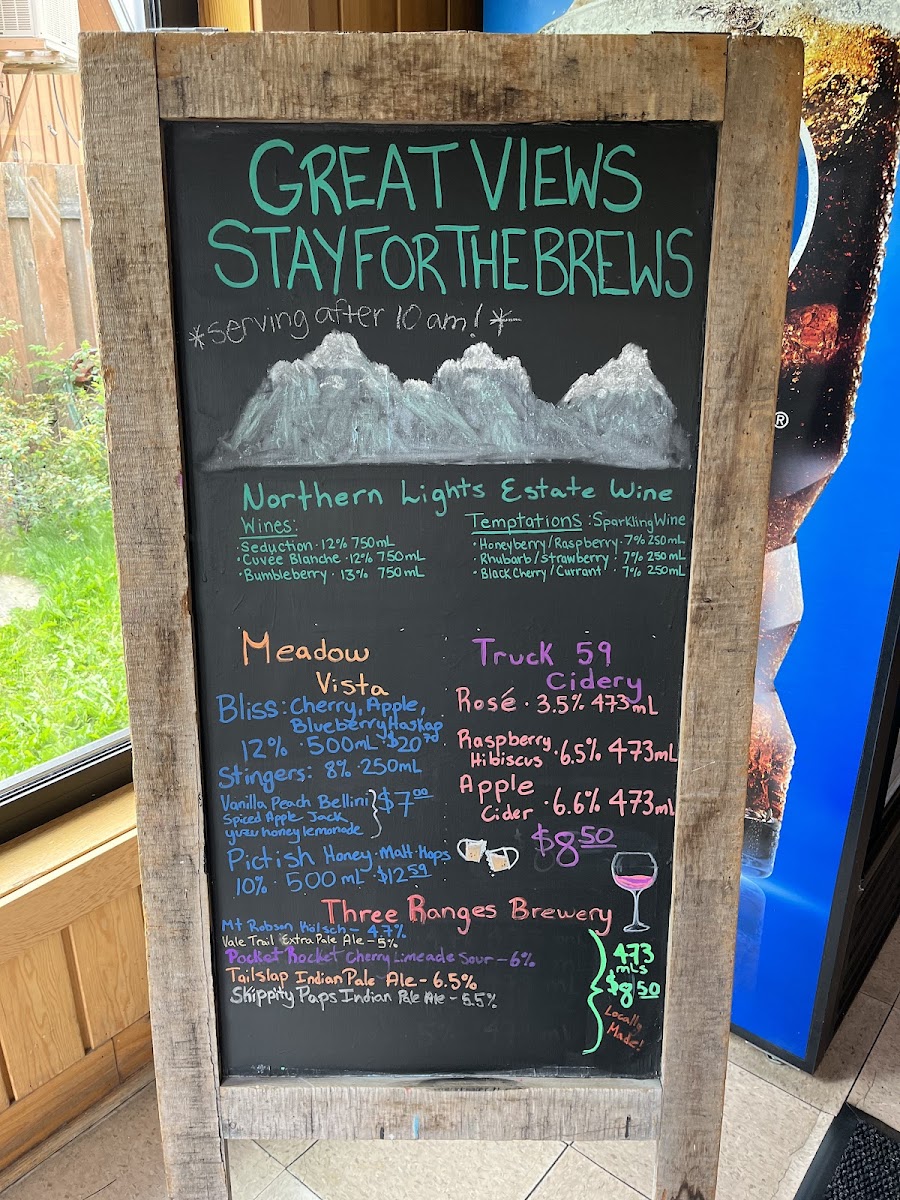 GREAT VIEWS
STAY FOR THE BREWS
*serving after 10 am! *
Northern Lights Estate Wine
Wines:
·Seduction · 12% 750mL
·Cuvée Blanche · 12% 750mL
·Bumbleberry · 13% 750mL
Temptations : Sparkling Wine
·Honeyberry/Raspberry · 7% 250mL
·Rhubarb/Strawberry · 7% 250mL
·Black Cherry/Currant · 7% 250mL
Meadow
Vista
Bliss: Cherry, Apple,
Blueberry, Haskap
12% · 500mL ·
Stingers: 8% · 250mL
Vanilla Peach Bellini
Spiced Apple Jack
yuzu honey lemonade
$7.00
Pictish Honey · Malt · Hops
10% · 500mL · $12.59
Truck 59
Cidery
Rosé · 3.5% 473mL
Raspberry
Hibiscus · 6.5% 473mL
Apple
Cider · 6.6% 473mL
$8.50
Three Ranges Brewery
Mt Robson Kölsch - 4.7%
Vale Trail Extra Pale Ale - 5%
Pocket Rocket Cherry Limeade Sour - 6%
Tailslap Indian Pale Ale - 6.5%
Skippity Paps Indian Pale Ale - 6.5%
473
mLs
$8.50
Locally
Made!
®